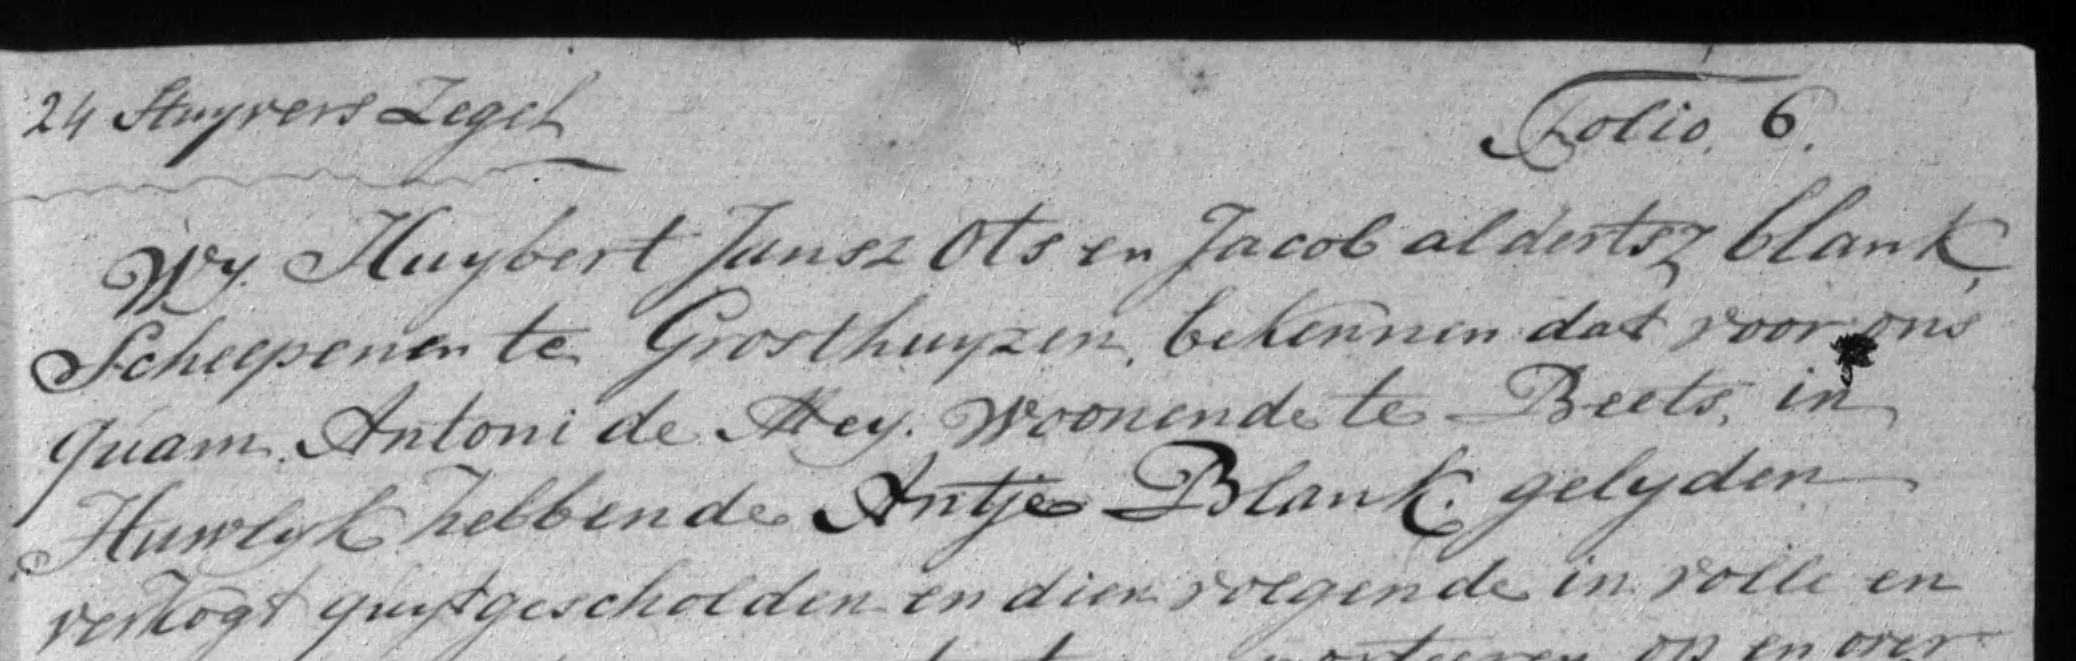 24 Stuyvers Zegel
Folio. 6.
Wy. Huybert Jansz Ots en Jacob aldertsz blank,
Scheepenen te Grosthuyzen, bekennen dat voor ons
quam. Antoni de Mey. Woonende te Beets, in
Huwlyk hebbende Antje Blank. gelyden
verkogt quytgescholden en dien volgende in volle en
op en over